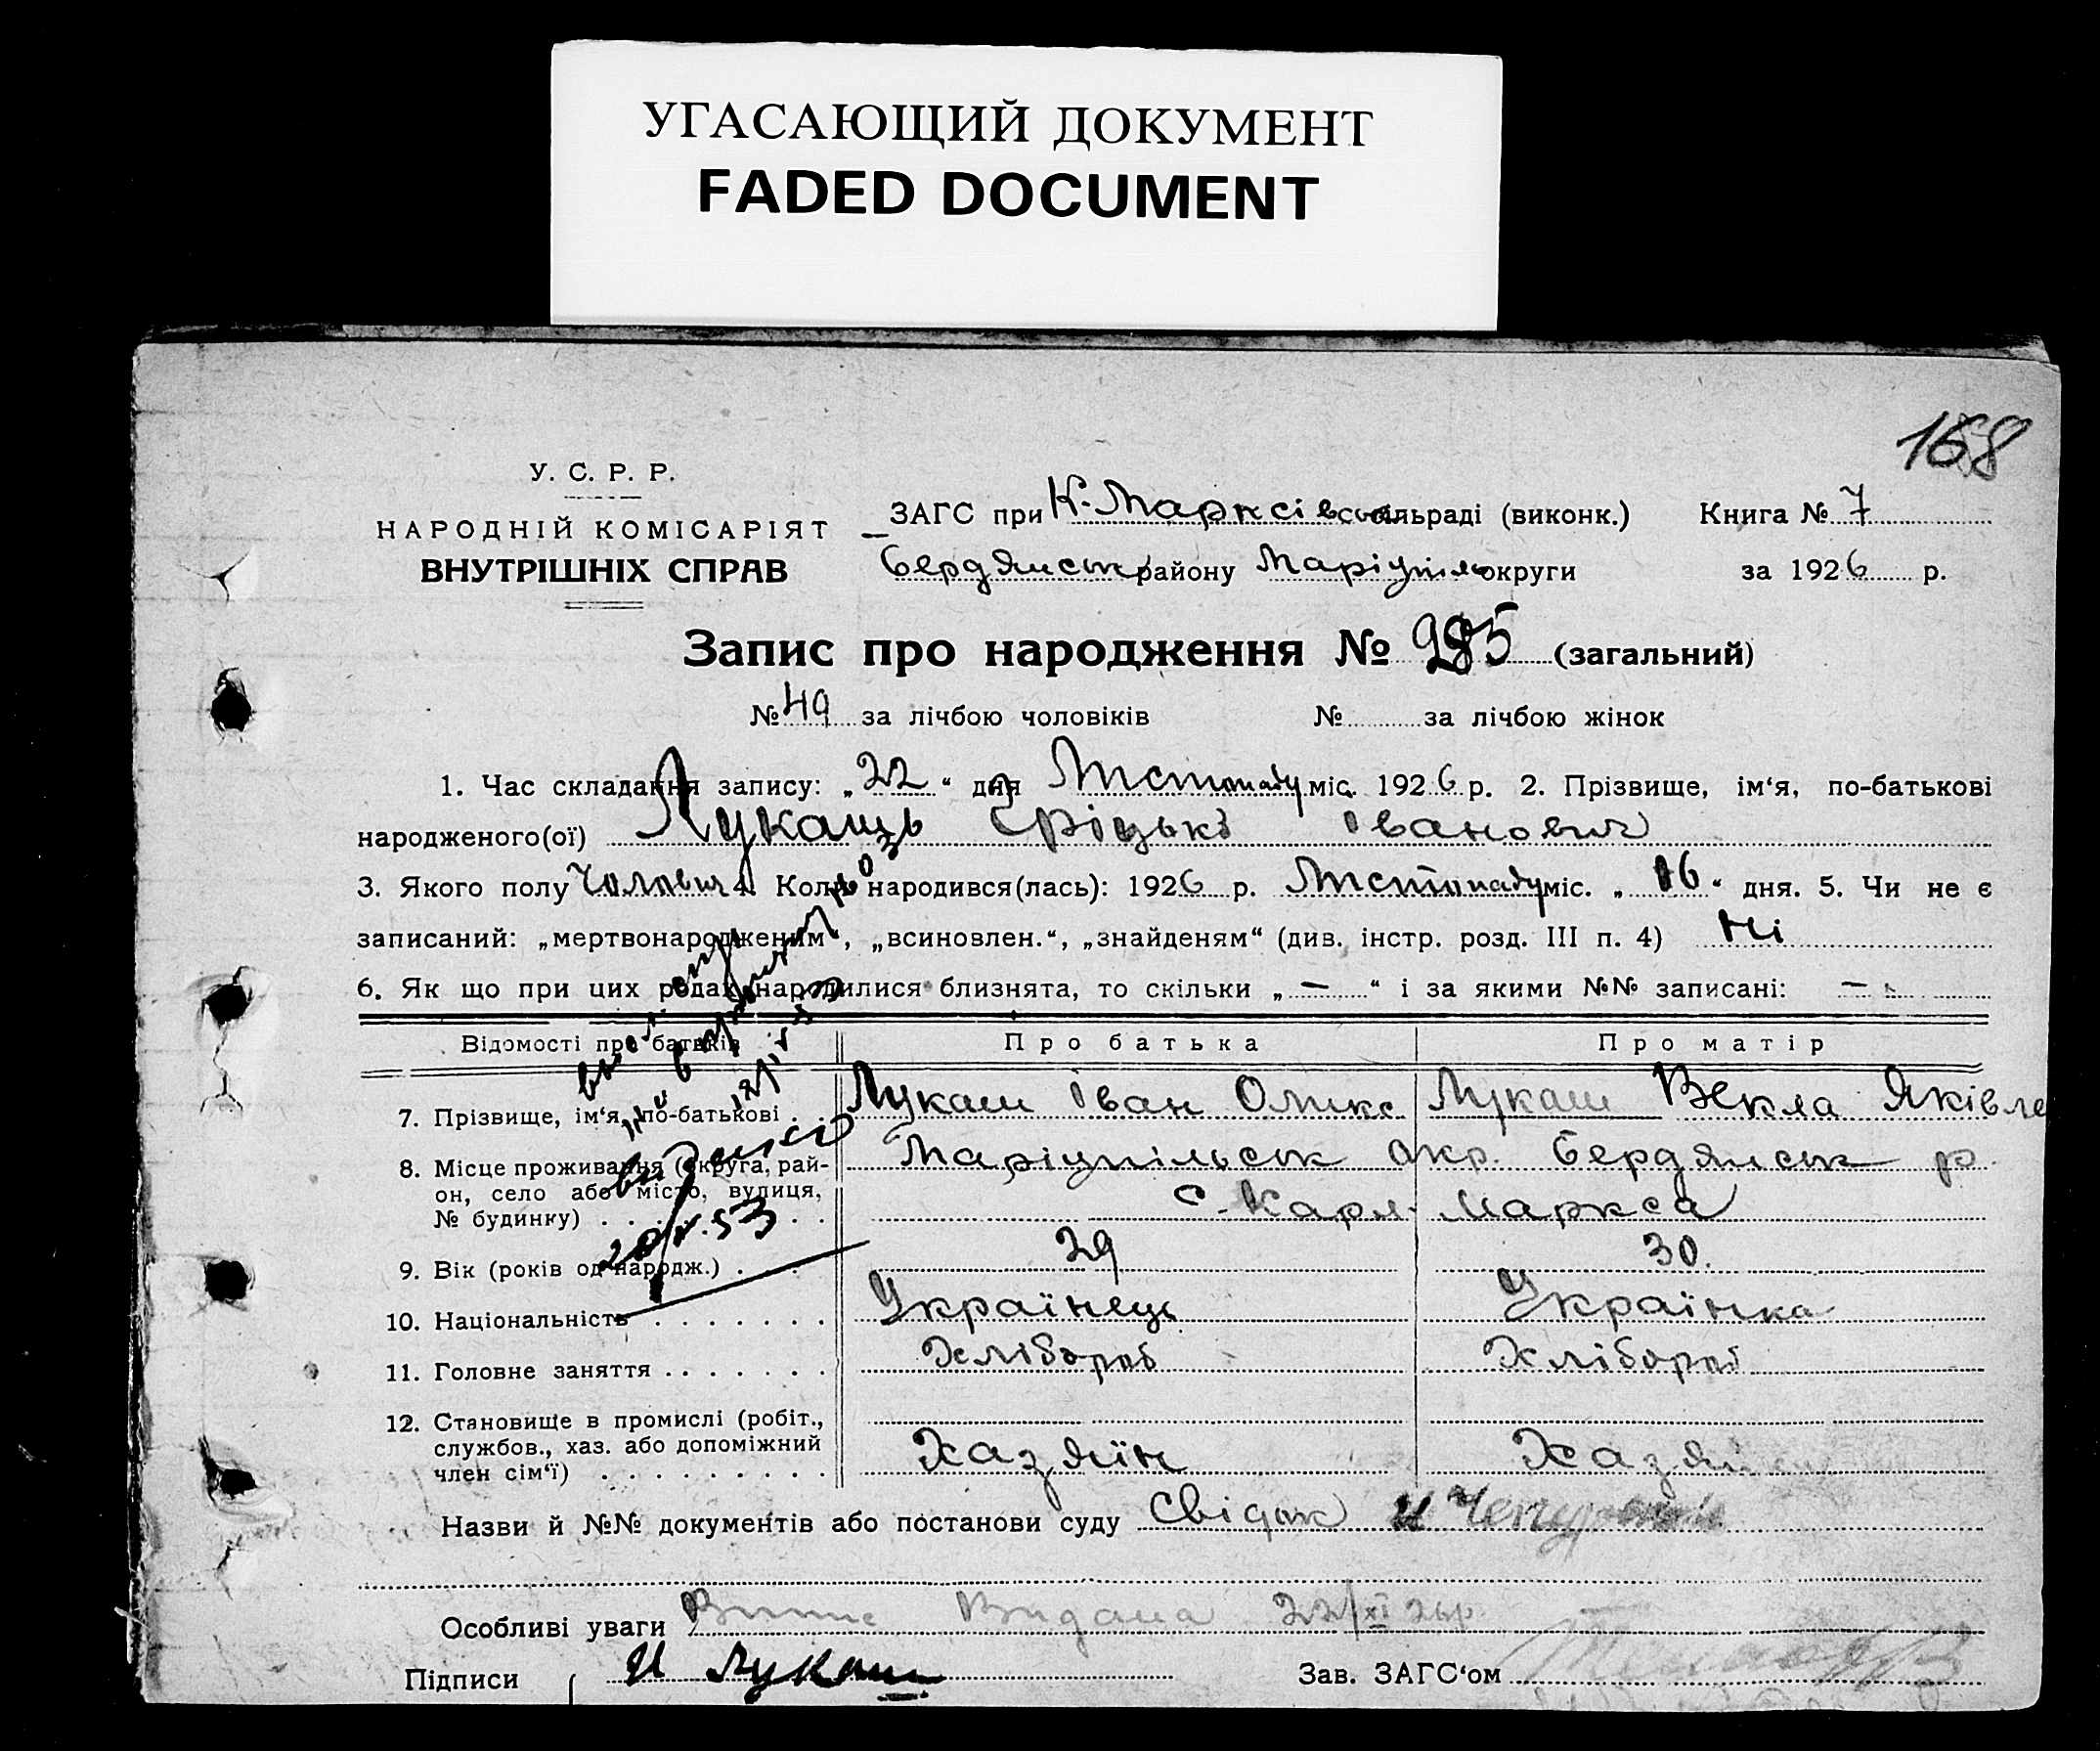 УГАСАЮЩИЙ ДОКУМЕНТ
FADED DOCUMENT
168
У. С. Р. Р.
НАРОДНІЙ КОМІСАРІЯТ
ВНУТРІШНІХ СПРАВ
ЗАГС при К-Марксівськ сільраді (виконк.) Книга № 7
Бердянськ району Маріупіль округи за 1926 р.
Запис про народження № 285 (загальний)
№ 49 за лічбою чоловіків № за лічбою жінок
1. Час складання запису: „22“ дня Листопаду міс. 1926 р. 2. Прізвище, ім‘я, по-батькові
народженого(ої) Лукаш Іванович
3. Якого полу Чоловіч 4. Коли народився(лась): 1926 р. Листопаду міс. „16“ дня. 5. Чи не є
записаний: „мертвонародженим“, „всиновлен.“, „знайденям“ (див. інстр. розд. III п. 4) Ні
6. Як що при цих родах народилися близнята, то скільки „—“ і за якими №№ записані: —
Відомості про батьків Про батька Про матір
7. Прізвище, ім‘я, по-батькові . . Лукаш Іван Омикс Лукаш Векла Яківле
8. Місце проживання (округа, рай- Маріупільськ окр. Бердянськ р
он, село або місто, вулиця, с. Карл Маркса
№ будинку) . . . . . . . . .
20/V.53
9. Вік (років од народж.) . . . 29 30.
10. Національність . . . . . . . Українець Українка
11. Головне заняття . . . . . . . Хлібороб Хлібороб
12. Становище в промислі (робіт.,
службов., хаз. або допоміжний Хазяїн Хазяй
член сім‘ї) . . . . . . . . .
Назви й №№ документів або постанови суду Свідок И
Особливі уваги Випис Видана 22/XI 26р.
Підписи И Лукаш Зав. ЗАГС‘ом